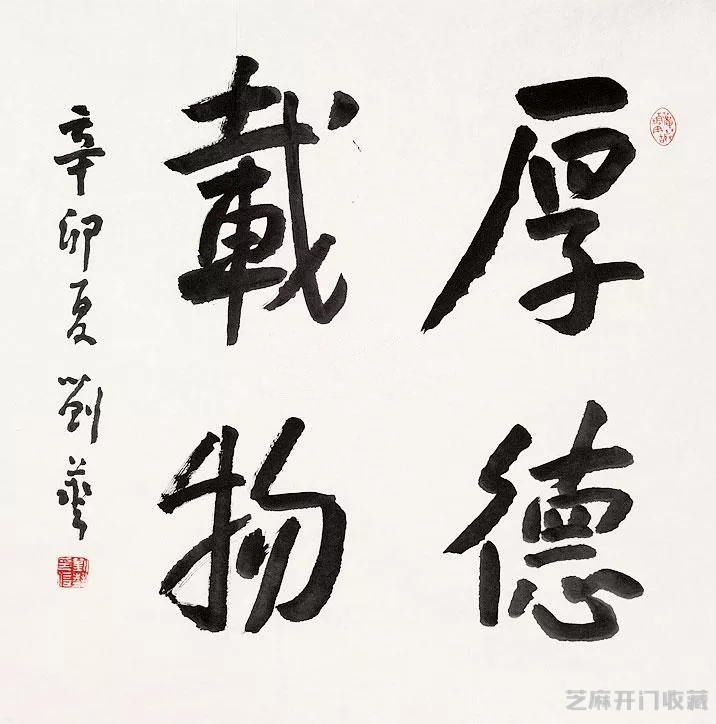 厚德
載物
辛卯夏 劉
芝麻开门收藏